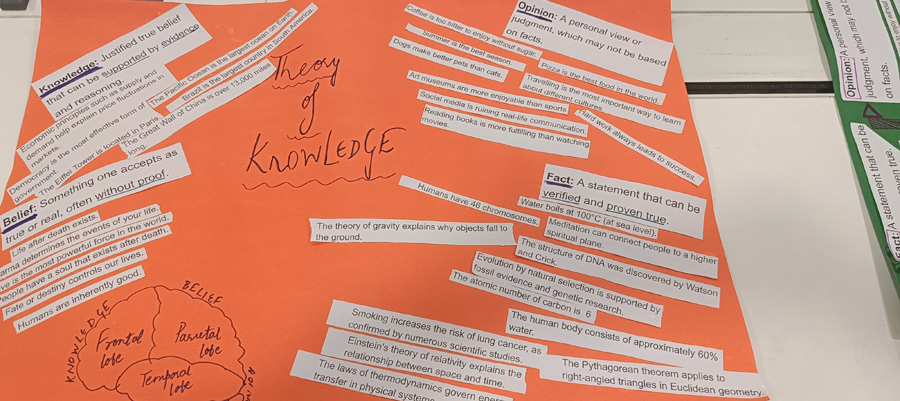 Knowledge: Justified true belief
that can be supported by evidence
and reasoning.
Economic principles such as supply and
demand help explain price fluctuations in
markets.
The Pacific Ocean is the largest ocean on Earth.
Brazil is the largest country in South America.
Democracy is the most effective form of
government.
The Eiffel Tower is located in Paris
The Great Wall of China is over 13,000 miles
long.
Belief: Something one accepts as
true or real, often without proof.
Life after death exists.
determines the events of your life.
is the most powerful force in the world.
People have a soul that exists after death.
Fate or destiny controls our lives.
Humans are inherently good.
KNOWLEDGE
BELIEF
Frontal
lobe
Parietal
lobe
Temporal
lobe
Theory
of
KNOWLEDGE
Opinion: A personal view or
judgment, which may not be based
on facts.
Coffee is too bitter to enjoy without sugar.
Summer is the best season.
Dogs make better pets than cats.
Pizza is the best food in the world.
Travelling is the most important way to learn
about different cultures
Art museums are more enjoyable than sports
Social media is ruining real-life communication.
Reading books is more fulfilling than watching
movies.
Hard work always leads to success.
Fact: A statement that can be
verified and proven true.
Humans have 46 chromosomes.
Water boils at 100°C (at sea level).
Meditation can connect people to a higher
spiritual plane.
The theory of gravity explains why objects fall to
the ground.
The structure of DNA was discovered by Watson
and Crick.
Evolution by natural selection is supported by
fossil evidence and genetic research.
The atomic number of carbon is 6
The human body consists of approximately 60%
water.
Smoking increases the risk of lung cancer, as
confirmed by numerous scientific studies.
Einstein's theory of relativity explains the
relationship between space and time.
The laws of thermodynamics govern
transfer in physical
The Pythagorean theorem applies to
right-angled triangles in Euclidean geometry.
Opinion: A personal
judgment, which may not b
on facts.
Fact: A statement that can be